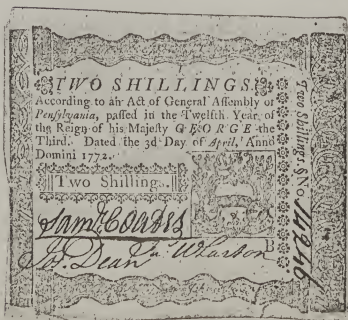 TWO SHILLINGS.
According to an Act of General Assembly of
Pensylvania, passed in the Twelfth Year of
the Reign of his Majesty GEORGE the
Third. Dated the 3d Day of April, Anno
Domini 1772.
Two Shillings.
Saml Coates
Jos. Dean
Wharton
B
Two Shillings
No.